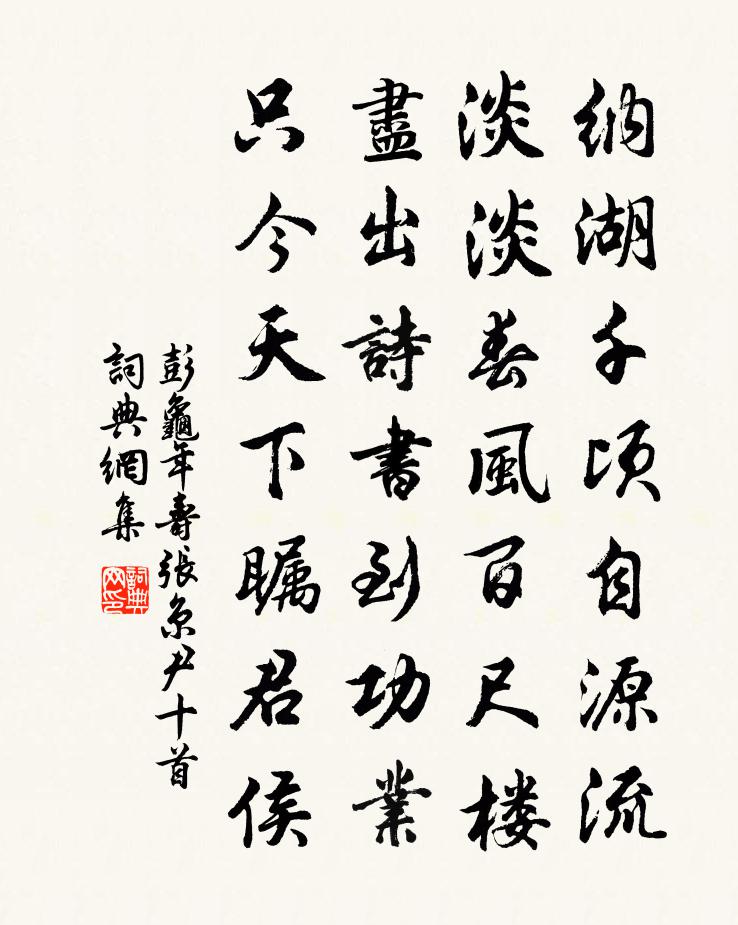 納湖千頃自源流
淡淡春風百尺楼
盡出詩書到功業
只今天下瞩君侯
彭龜年壽張京尹十首
詞典網集
詞典網印